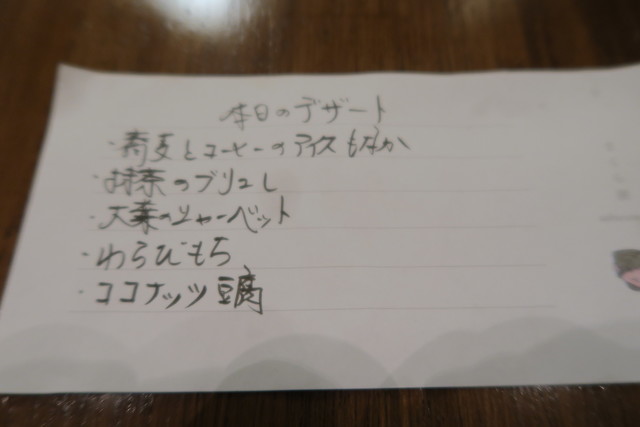 本日のデザート
・蕎麦とコーヒーのアイスもなか
・抹茶のブリュレ
・大葉のシャーベット
・わらびもち
・ココナッツ豆腐